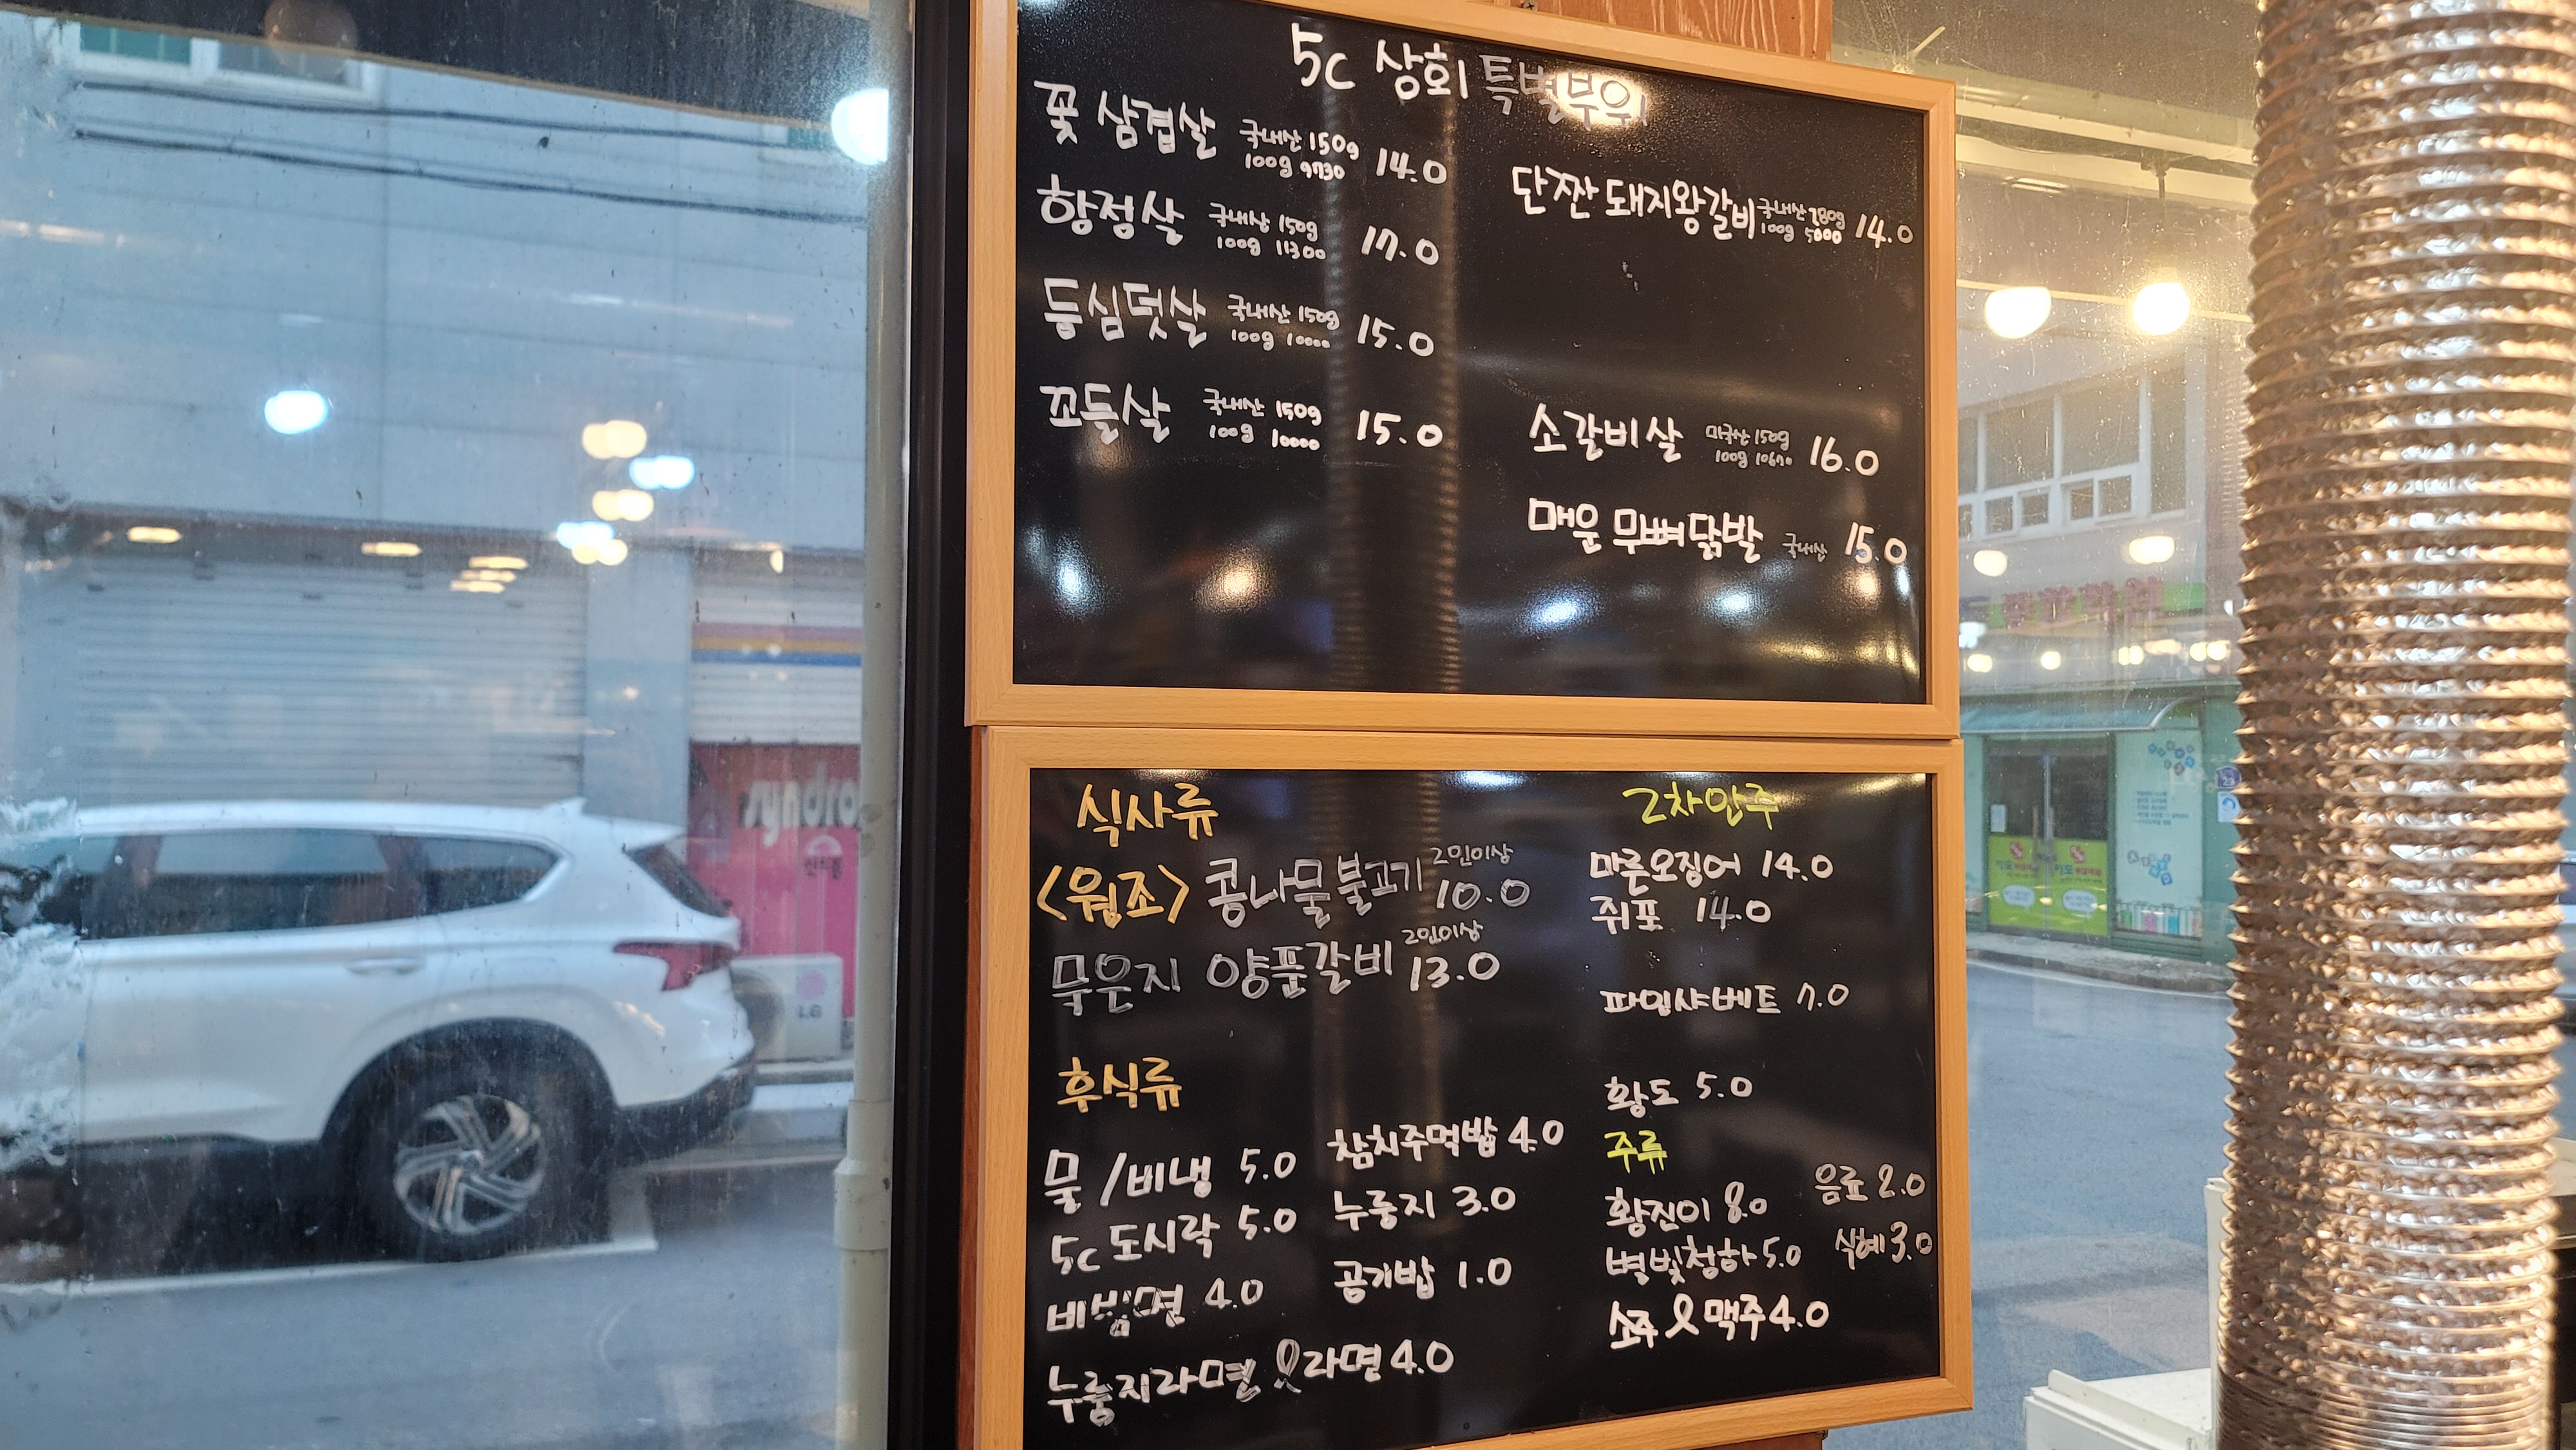 5c 상회 특별부위
꽃 삼겹살 국내산 150g 14.0
100g 9730
항정살 국내산 150g 17.0
100g 11300
등심덧살 국내산 150g 15.0
100g 10000
꼬들살 국내산 150g 15.0
100g 10000
단짠 돼지왕갈비 국내산 280g 14.0
100g 5000
소갈비살 미국산 150g 16.0
100g 10670
매운 무뼈닭발 국내산 15.0
식사류
<원조> 콩나물불고기 2인이상 10.0
묵은지 양푼갈비 2인이상 13.0
후식류
물/비냉 5.0
5c 도시락 5.0
비빔면 4.0
누룽지라면 & 라면 4.0
참치주먹밥 4.0
누룽지 3.0
공기밥 1.0
2차안주
마른오징어 14.0
쥐포 14.0
파인샤베트 7.0
황도 5.0
주류
황진이 8.0
별빛청하 5.0
소주 & 맥주 4.0
음료 2.0
식혜 3.0
syndro
신드롬
LG